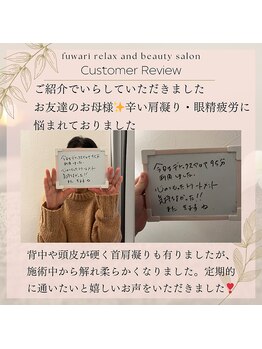 fuwari relax and beauty salon
Customer Review
ご紹介でいらしていただきました
お友達のお母様✨辛い肩凝り・眼精疲労に
悩まれておりました
利用しました。
背中や頭皮が硬く首肩凝りも有りましたが、
施術中から解れ柔らかくなりました。定期的
に通いたいと嬉しいお声をいただきました❣